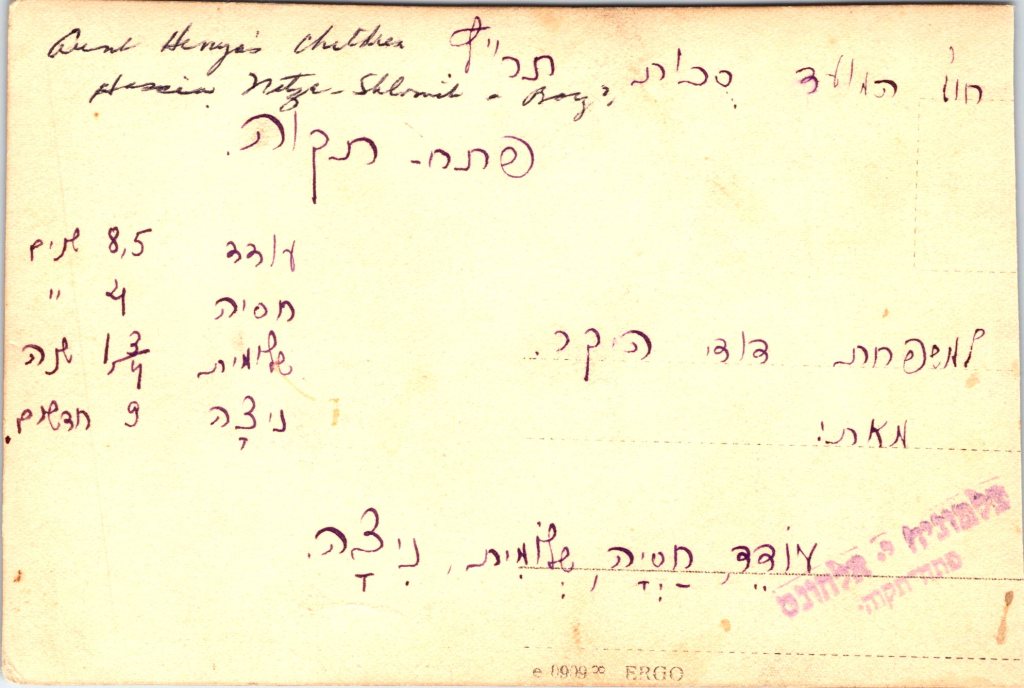 Aunt Henya's Children
Hassia Netza - Shlomit - Boy?
חול המועד סכות
פתח - תקוה.
עודד 8,5 שנים
חסיה 4 "
שלומית 1 3/4 שנה
ניצָה 9 חדשים.
למשפחת דודי היקר.
מאת:
עוֹדֵד, חַסְיָה, שְלוֹמִית, נִיצָה.
פתח תקוה
e 0909 ERGO